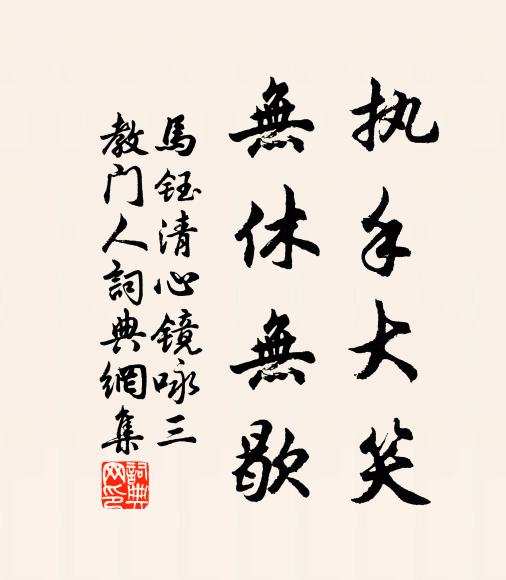 执手大笑
無休無歇
馬钰清心镜咏三
教门人詞典網集
詞典网印